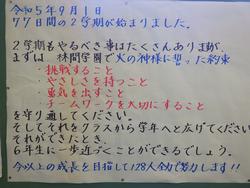 令和5年9月1日
77日間の2学期が始まりました。
2学期もやるべき事はたくさんありますが、
まずは 林間学園で火の神様に誓った約束
・挑戦すること
・やさしさを持つこと
・勇気を出すこと
・チームワークを大切にすること
を守り通してください。
そしてそれをクラスから学年へと広げてください。
それができたとき、
6年生に一歩近づくことができるでしょう。
今以上の成長を目指して128人全力で努力します!!